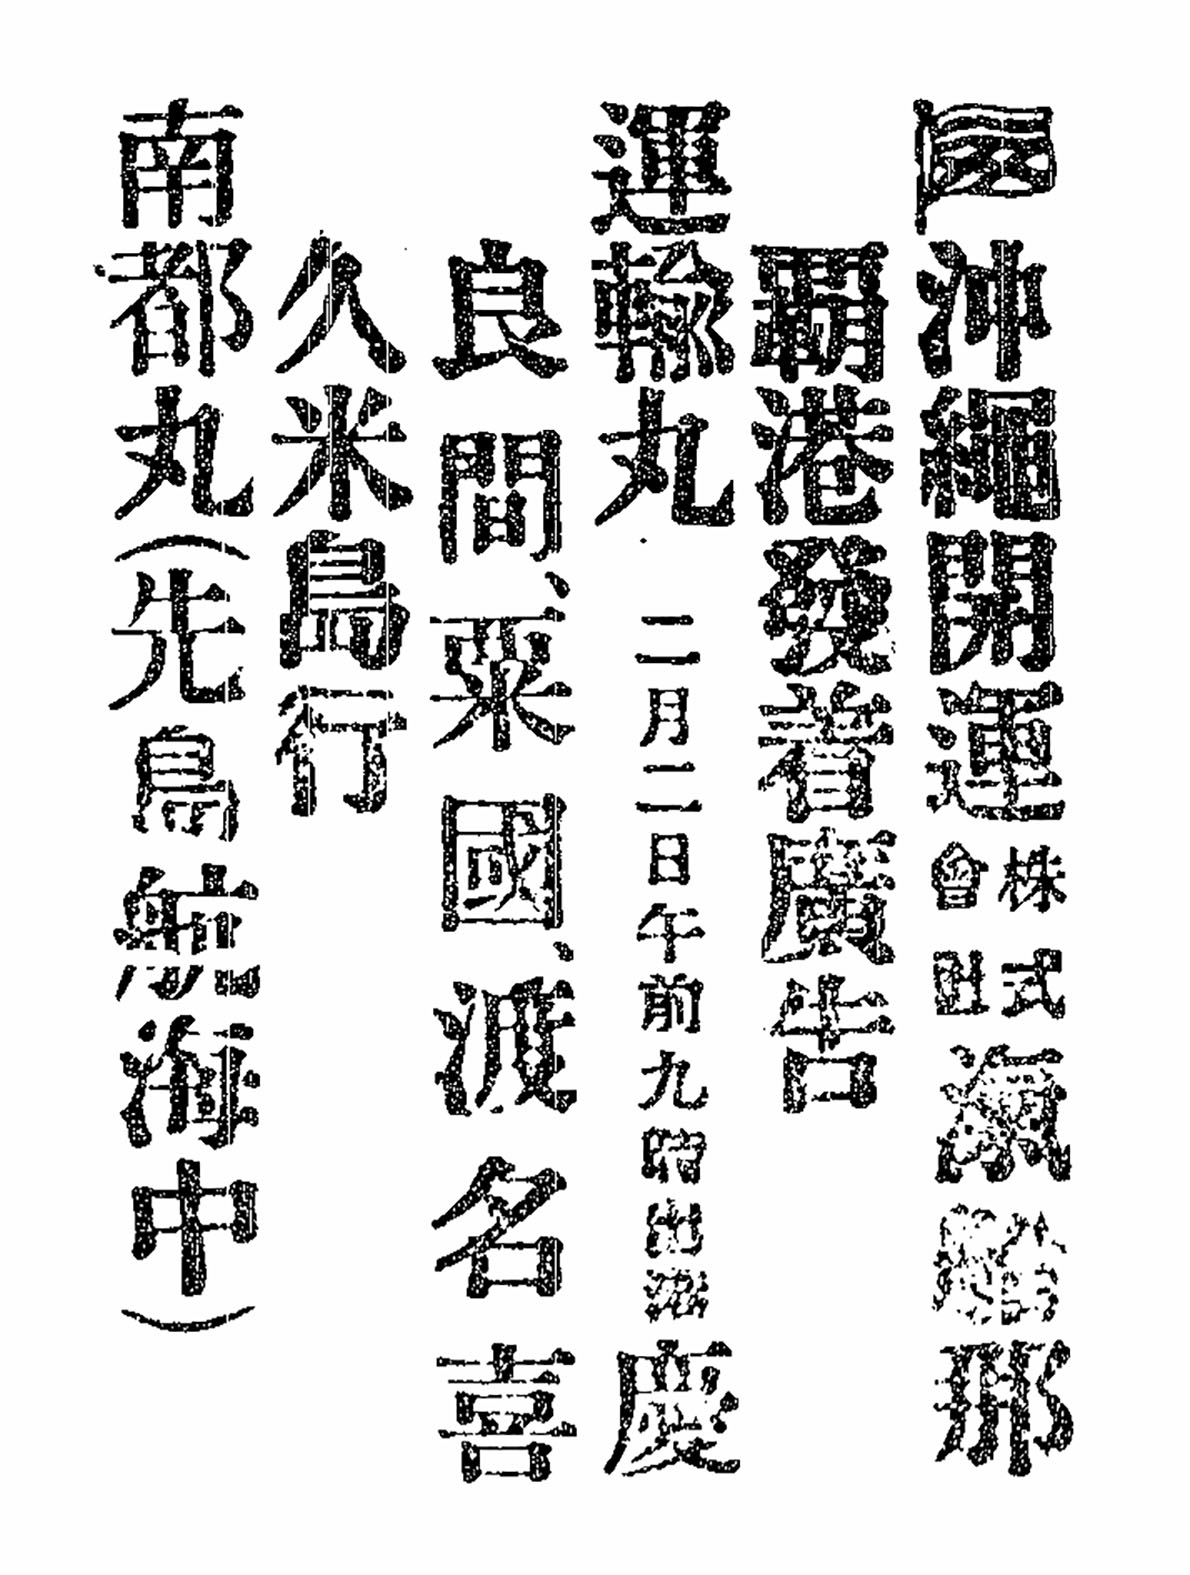 沖繩開運株式會社滊船那
覇港發着廣告
運輸丸 二月二日午前九時出港 慶
良間、粟國、渡名喜
久米島行
南都丸(先島航海中)